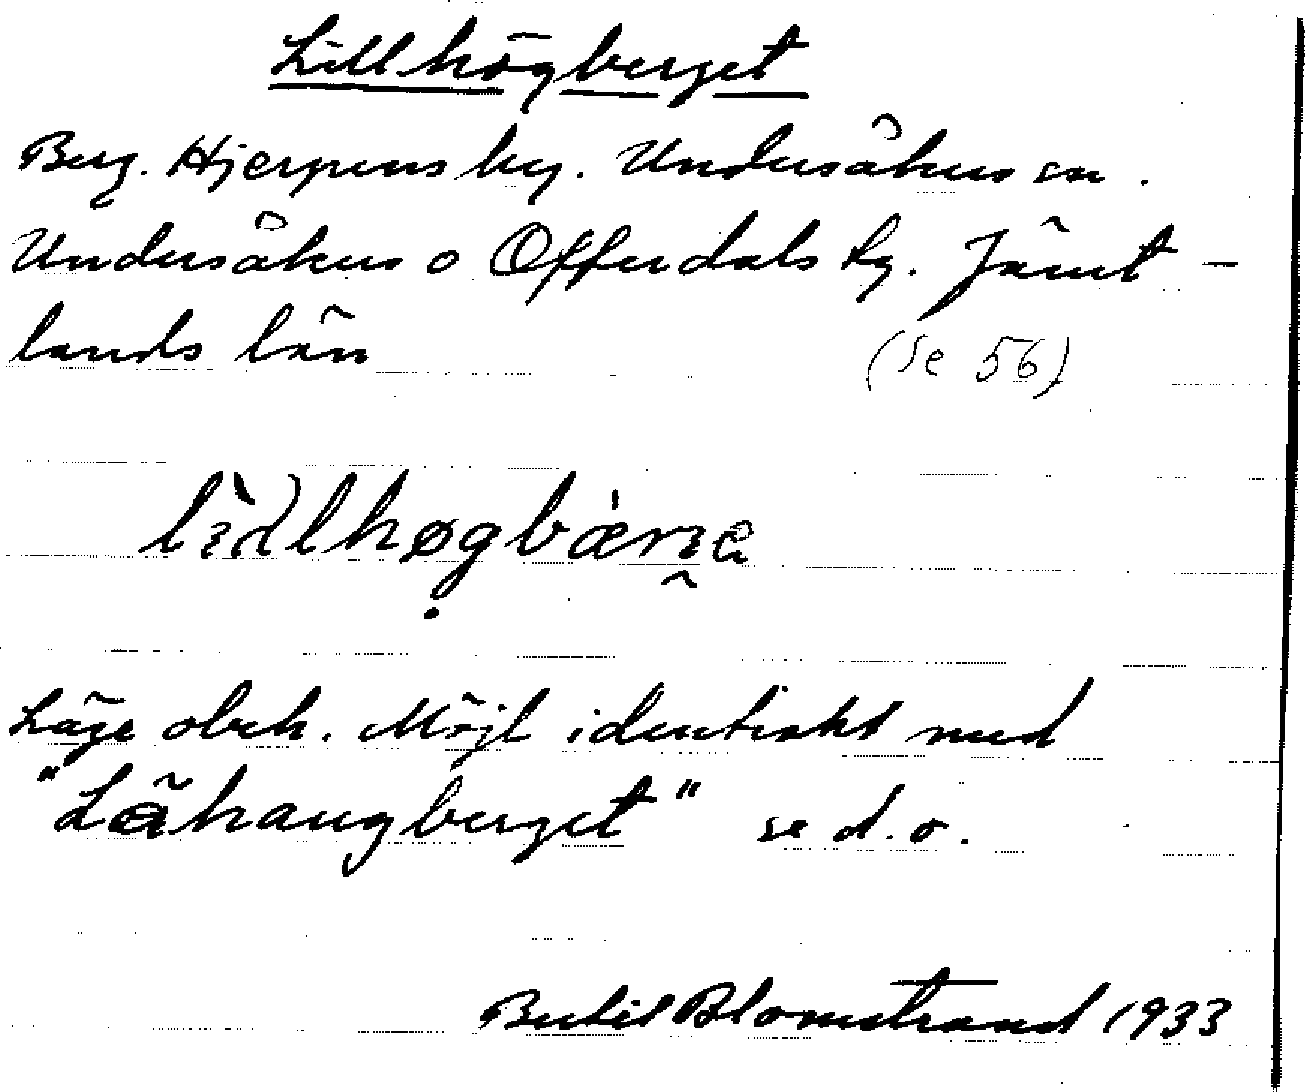 Lillhögberget
Berg. Hjerpens by. Undersåkers sn.
Undersåkers o Offerdals tg. Jämt-
lands län
(se 56)
Läge obek. Möjl identiskt med
"Låhaugberget" se d.o.
Bertil Blomstrand 1933